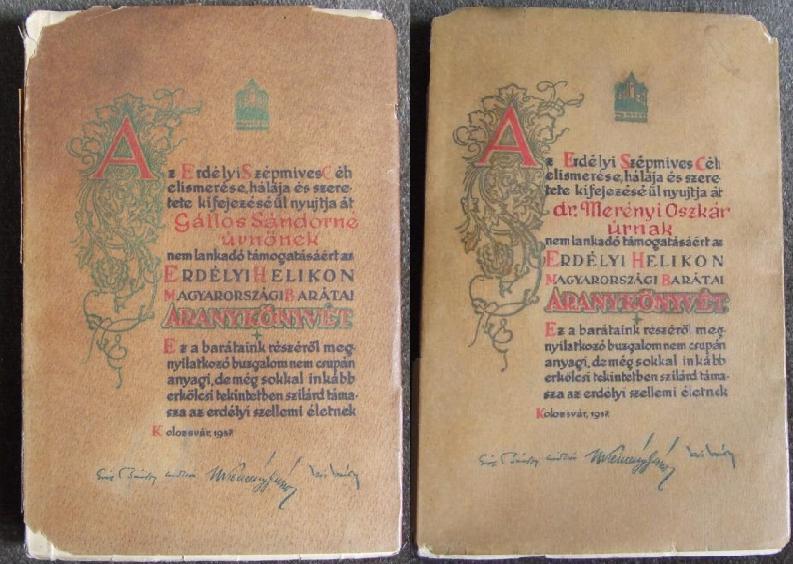 Az Erdélyi Szépmives Céh
elismerése, hálája és szere-
tete kifejezéséül nyujtja át
Gállos Sándorné
úrnőnek
nem lankadó támogatásáért az
ERDÉLYI HELIKON
MAGYARORSZÁGI BARÁTAI
ARANYKÖNYVÉT
Ez a barátaink részéről meg-
nyilatkozó buzgalom nem csupán
anyagi, de még sokkal inkább
erkölcsi tekintetben szilárd táma-
sza az erdélyi szellemi életnek
Kolozsvár, 1937.
Az Erdélyi Szépmives Céh
elismerése, hálája és szere-
tete kifejezéséül nyujtja át
dr. Merényi Oszkár
úrnak
nem lankadó támogatásáért az
ERDÉLYI HELIKON
MAGYARORSZÁGI BARÁTAI
ARANYKÖNYVÉT
Ez a barátaink részéről meg-
nyilatkozó buzgalom nem csupán
anyagi, de még sokkal inkább
erkölcsi tekintetben szilárd táma-
sza az erdélyi szellemi életnek
Kolozsvár, 1937.